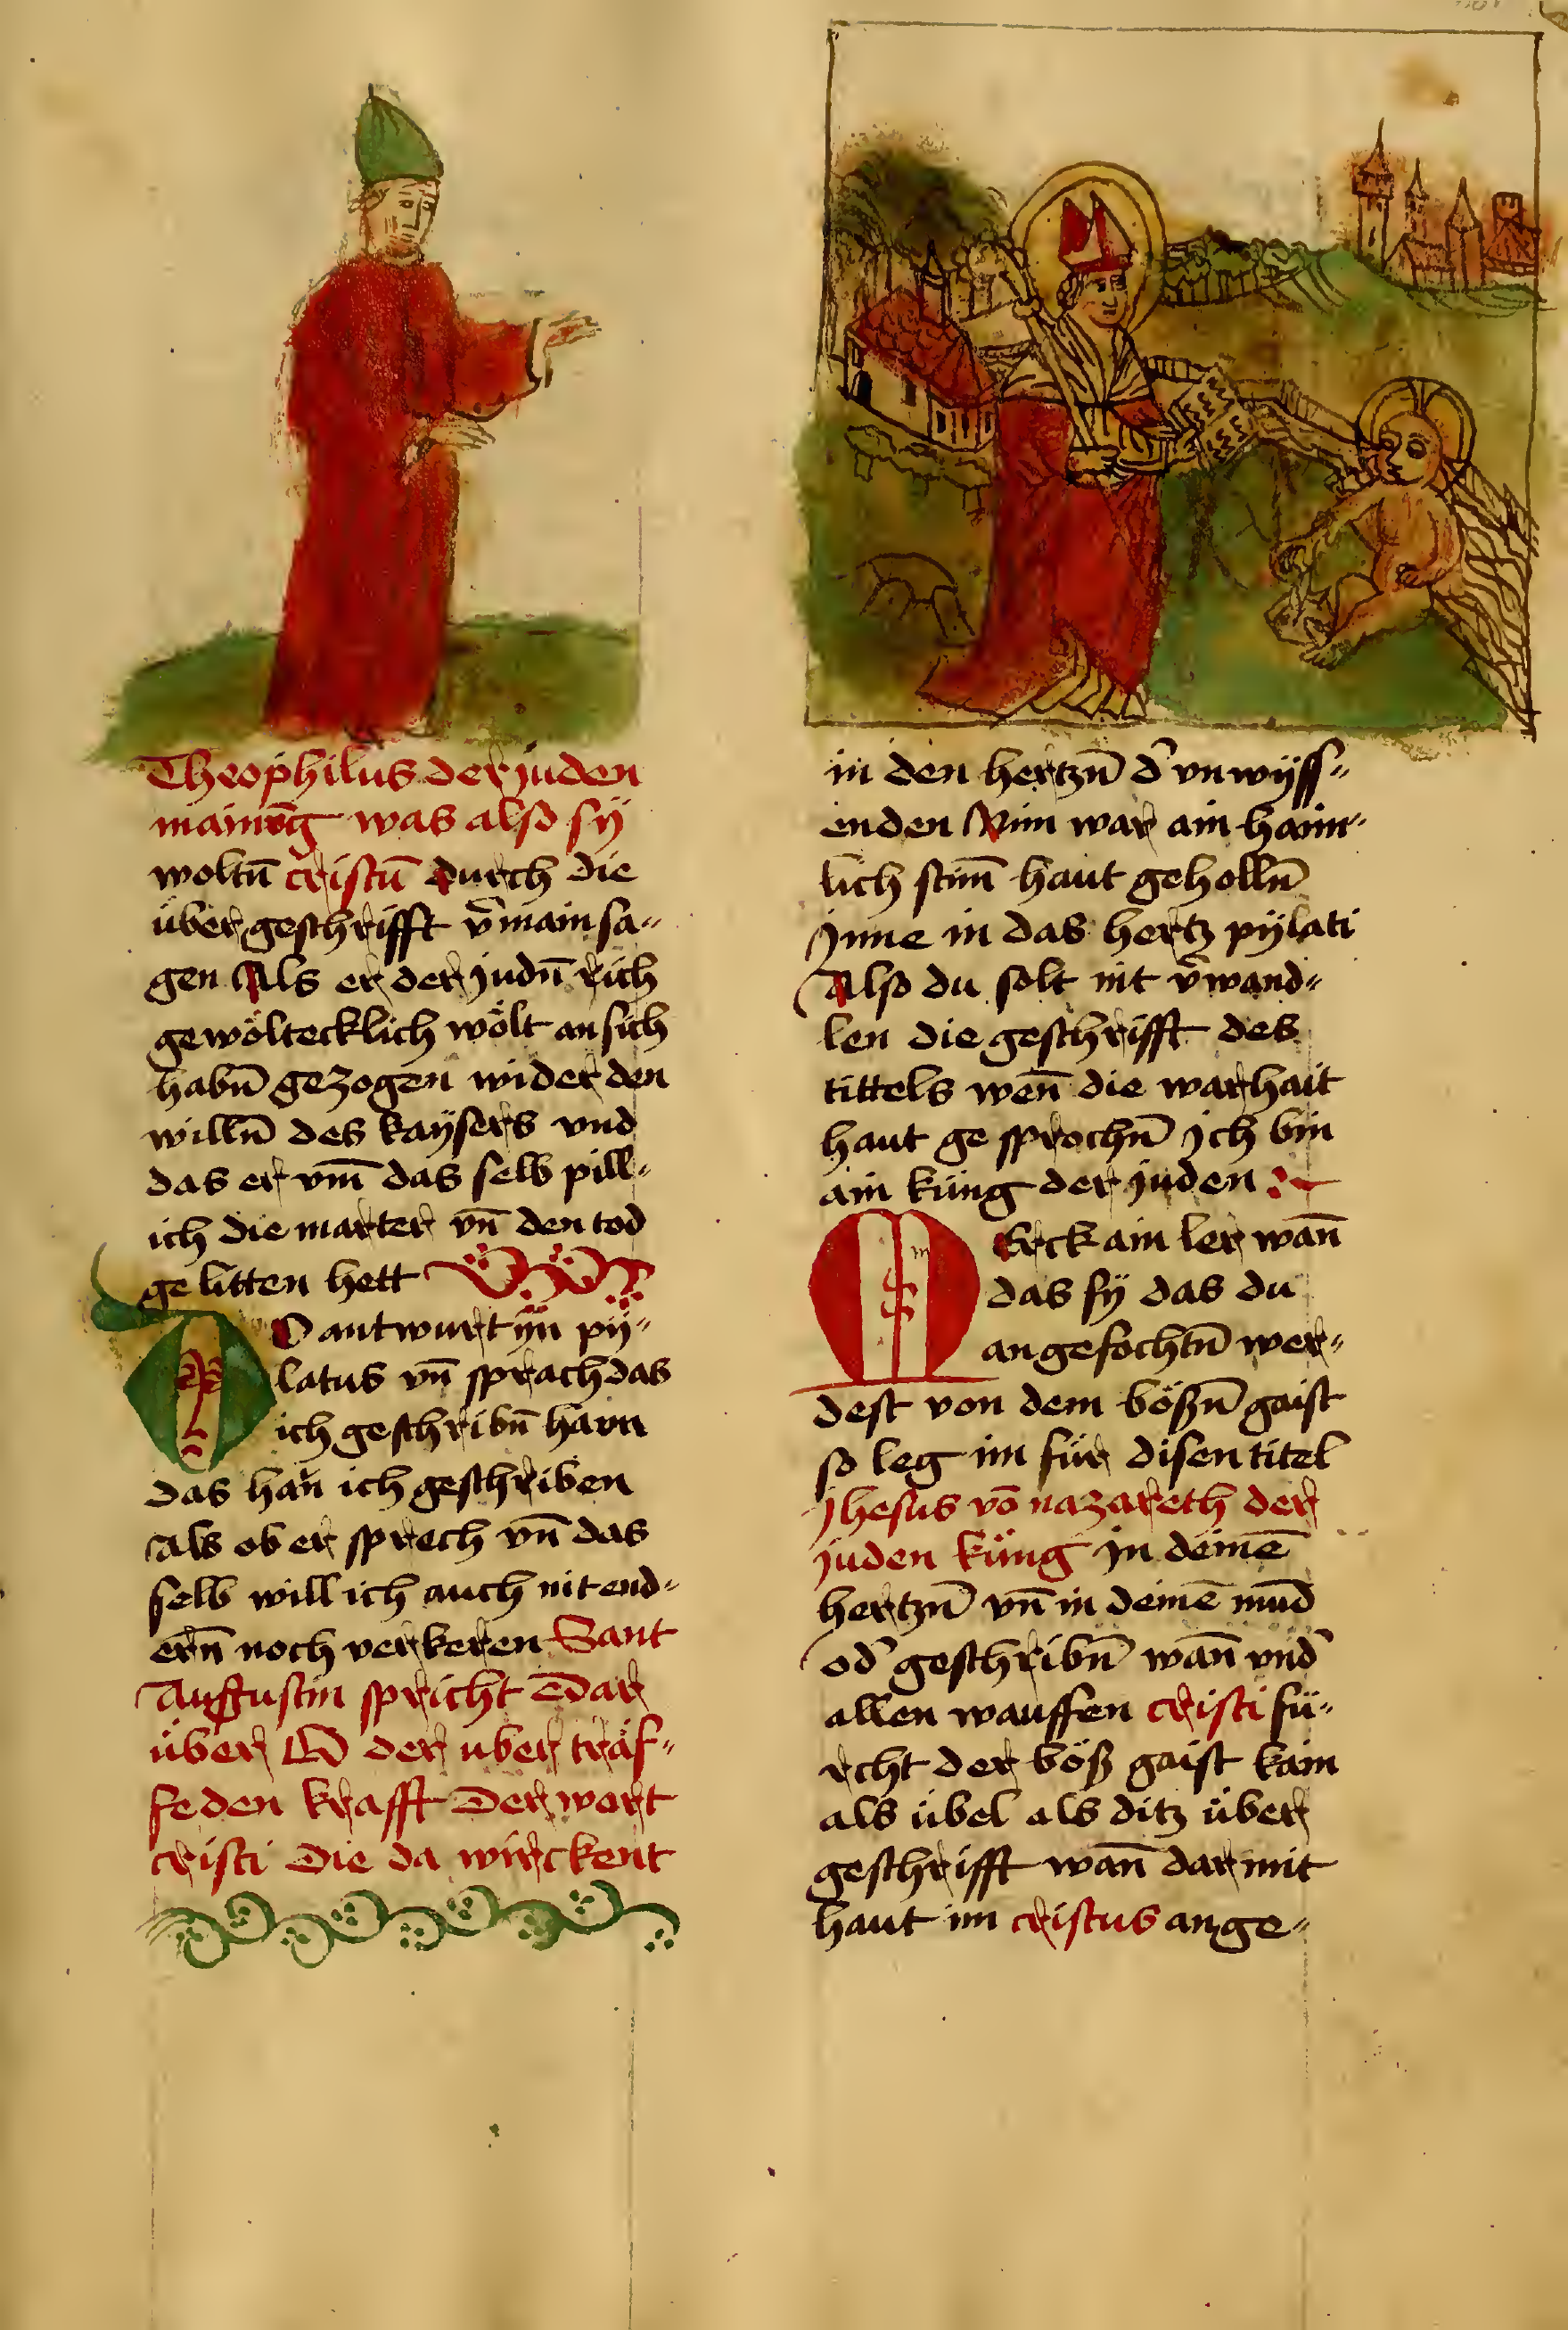 Theophilus der juden
mainūg was also sÿ
woltn̄ cristū durch die
über geschrifft v̄main sa„
gen Als er der judn̄ rich
gewöltecklich wölt an sich
habn̄ gezogen wider den
willn̄ des kaÿsers vnd
das er vm̄ das selb pill„
ich die marter vn̄ den tod
ge litten hett
DO antwurt ÿn pÿ„
latus vn̄ sprach das
ich geschribn̄ haun
das han ich geschriben
als ob er sprech vn̄ das
selb will ich auch nit end„
ern̄ noch verkeren Sant
Augustin spricht Dar
über O der uber träf„
feden krafft Der wort
cristi Die da wirckent
in den hertzn̄ d' vnwÿss„
enden Nim war ain haim„
lich stim̄ haut geholln̄
jnne in das hertz pÿlati
Also du solt nit v̄wand„
len die geschrifft des
tittels wen̄ die warhait
haut ge sprochn̄ jch bin
ain küng der juden
MErck ain ler wan̄
das sÿ das du
angefochtn̄ wer„
dest von dem bößn̄ gaist
so leg im für disen titel
Jhesus vō nazareth der
juden küng jn deinē
hertzn̄ vn̄ in deinē mūd
od' geschribn̄ wan̄ vnd'
allen wauffen cristi fü„
rcht der böß gaist kain
als übel als ditz über
geschrifft wan̄ dar mit
haut im cristus ange„